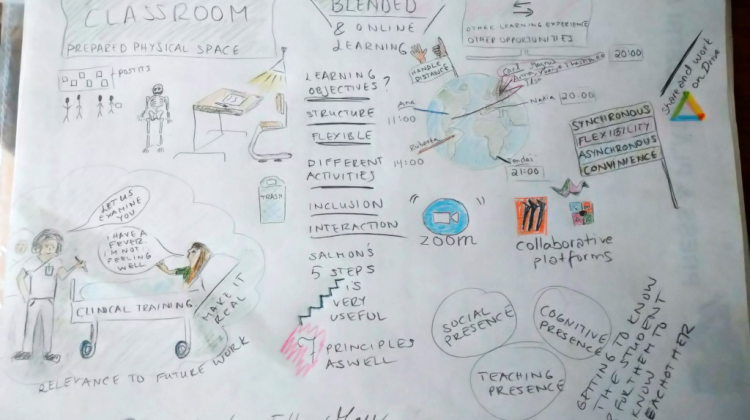 CLASSROOM
PREPARED PHYSICAL SPACE
POSTITS
TRASH
LET US
EXAMINE
YOU
I HAVE A
FEVER.
I'M NOT
FEELING
WELL
CLINICAL TRAINING
MAKE IT
REAL
RELEVANCE TO FUTURE WORK
BLENDED
& ONLINE
LEARNING
LEARNING
OBJECTIVES?
STRUCTURE
FLEXIBLE
DIFFERENT
ACTIVITIES
INCLUSION
INTERACTION
SALMON'S
5 STEPS
IS
VERY
USEFUL
7 PRINCIPLES
AS WELL
OTHER LEARNING EXPERIENCE
OTHER OPPORTUNITIES
HANDLE
DISTANCE
20:00
Ana
11:00
Nadia 20:00
14:00
21:00
SYNCHRONOUS
FLEXIBILITY
ASYNCHRONOUS
CONVENIENCE
share and work
on Drive
zoom
collaborative
platforms
SOCIAL
PRESENCE
COGNITIVE
PRESENCE
TEACHING
PRESENCE
GETTING TO KNOW
THE STUDENT
& FOR THEM TO
KNOW
EACHOTHER